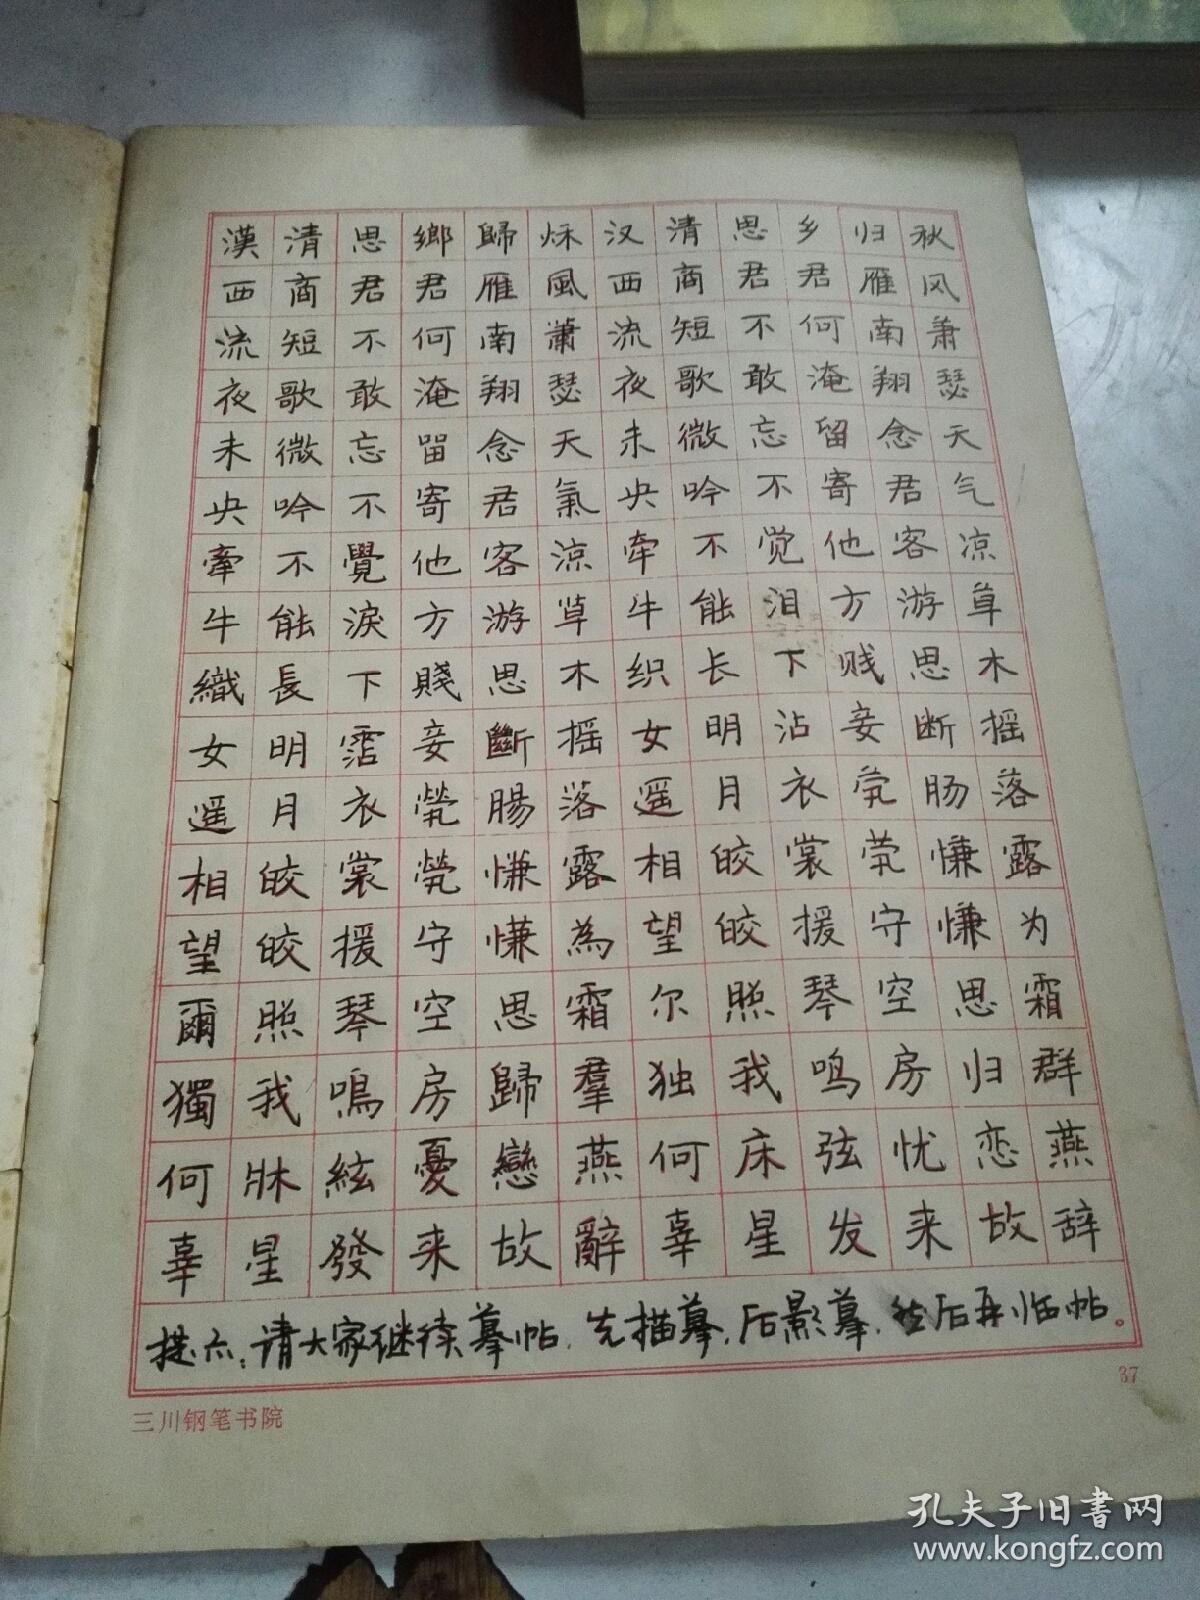 秋风萧瑟天气凉草木摇落露为霜群燕辞
归雁南翔念君客游思断肠慊慊思归恋故
乡君何淹留寄他方贱妾茕茕守空房忧来
思君不敢忘不觉泪下沾衣裳援琴鸣弦发
清商短歌微吟不能长明月皎皎照我床星
汉西流夜未央牵牛织女遥相望尔独何辜
秌風蕭瑟天氣涼草木摇落露為霜羣燕辭
歸雁南翔念君客游思斷腸慊慊思歸戀故
鄉君何淹留寄他方賤妾煢煢守空房憂来
思君不敢忘不覺淚下霑衣裳援琴鳴絃發
清商短歌微吟不能長明月皎皎照我牀星
漢西流夜未央牽牛織女遥相望爾獨何辜
提示:请大家继续摹帖.先描摹,后影摹,然后再临帖。
37
三川钢笔书院
孔夫子旧书网
www.kongfz.com